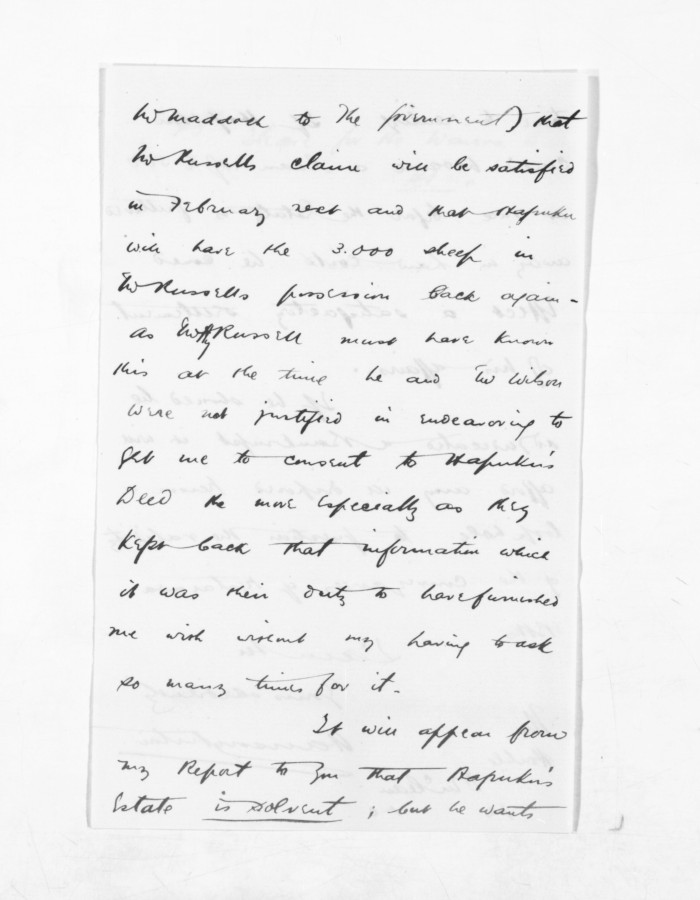 Mr Maddock to the Government) that
Mr Russells claim will be satisfied
in February next and that Hapuku
will have the 3.000 sheep in
Mr Russells possession back again -
as Mr H Russell must have known
this at the time he and Mr Wilson
were not justified in endeavoring to
get me to consent to Hapuku's
Deed the more especially as they
kept back that information which
it was their duty to have furnished
me with without my having to ask
so many times for it -
It will appear from
my Report to you that Hapuku's
Estate is solvent ; but he wants